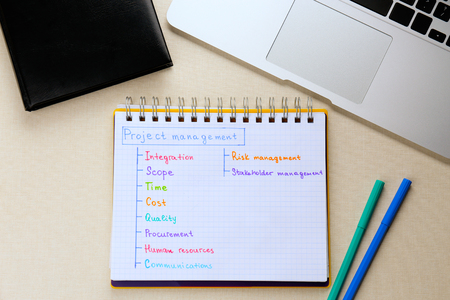 Project management
Integration
Scope
Time
Cost
Quality
Procurement
Human resources
Communications
Risk management
Stakeholder management